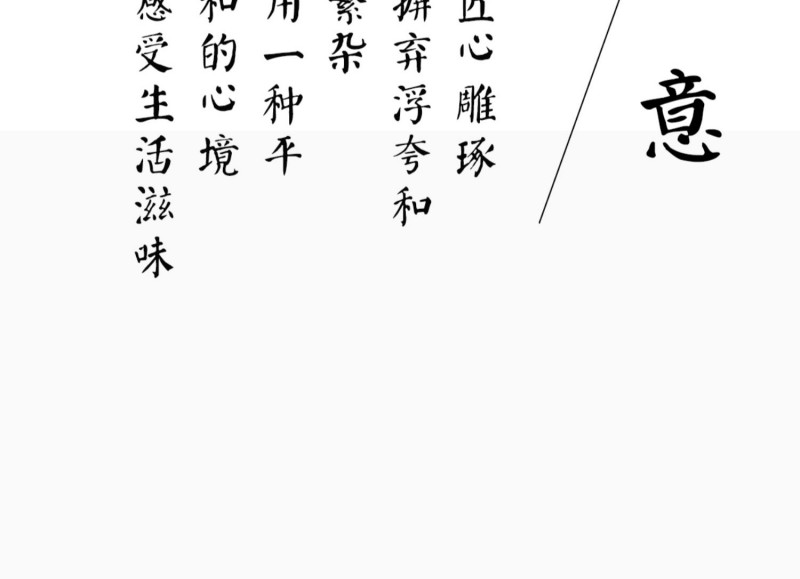 意
匠心雕琢
摒弃浮夸和
繁杂
用一种平
和的心境
感受生活滋味